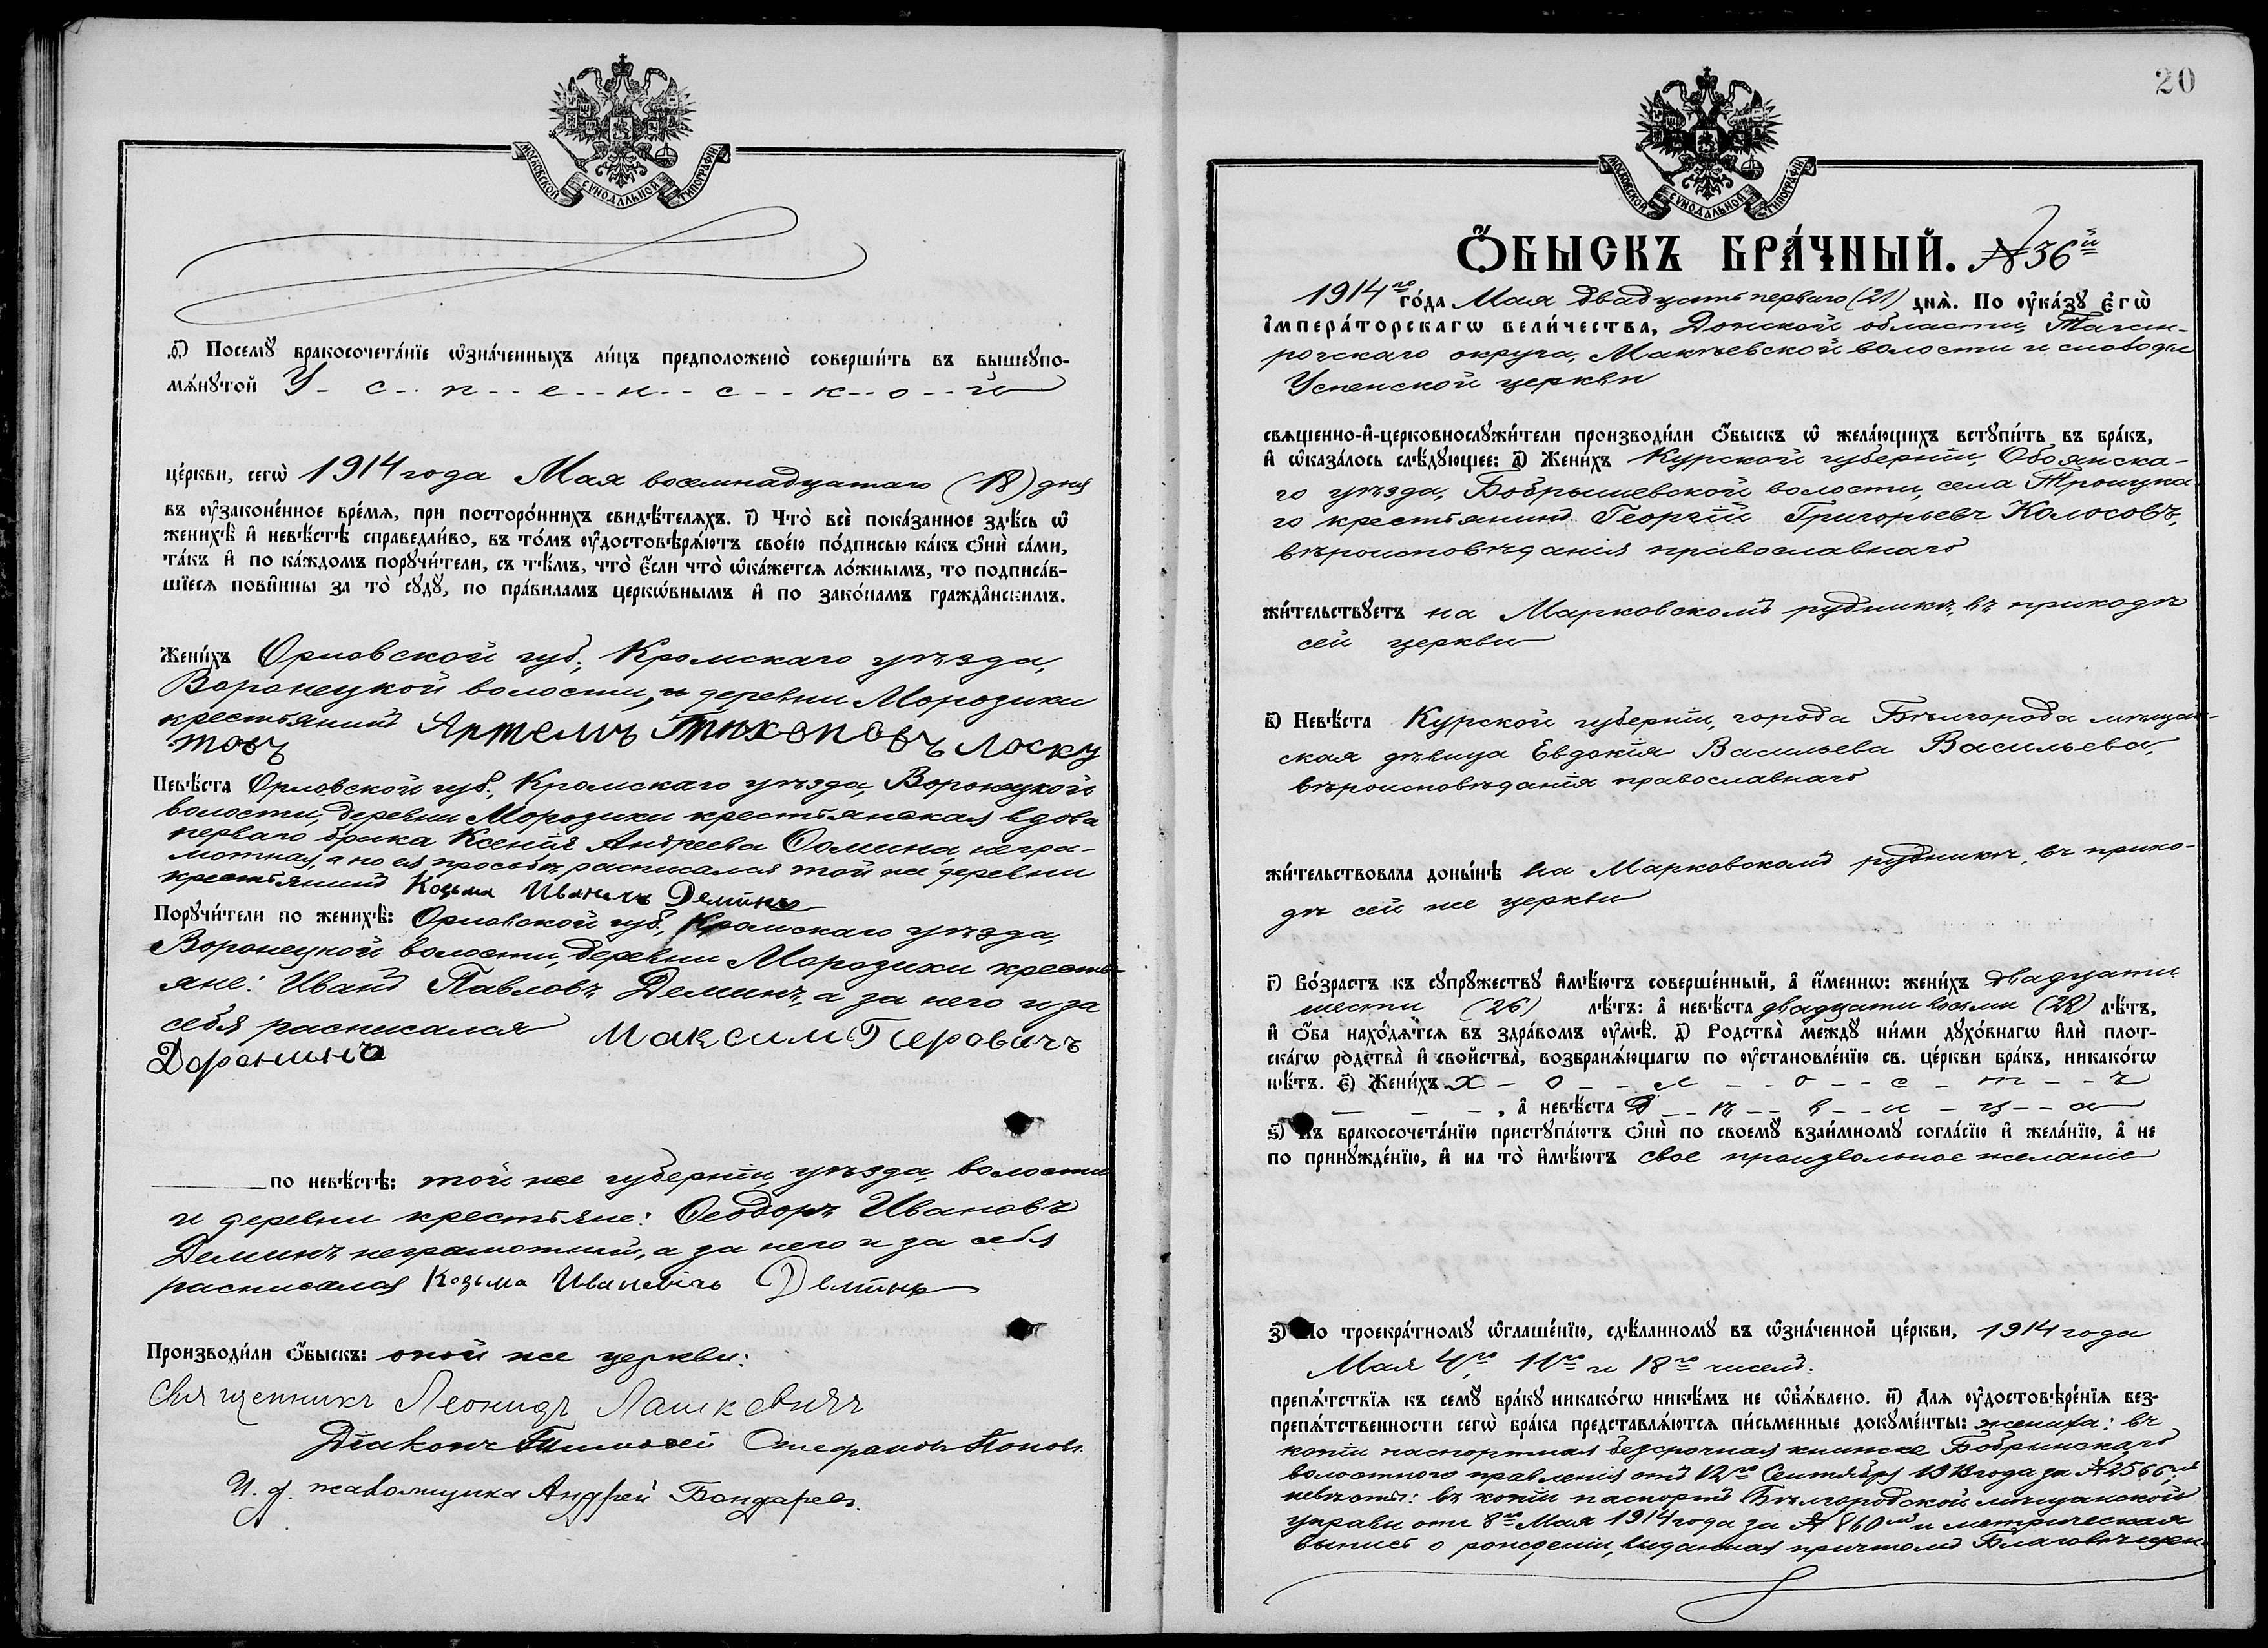 МОСКОВСКОЙ СѴНОДАЛЬНОЙ ТИПОГРАФІИ
Ѳ҃) Посемꙋ̀ бракосочета́нїе ѡ҆зна́ченныхъ ли́цъ предположено̀ соверши́ть въ вышеꙋпо-
мѧ́нꙋтой У- с-- п-- е-- н-- с-- к-- о-- й
це́ркви, сегѡ̀ 1914 года Мая восемнадцатаго (18) дня
въ ᲂу҆законе́нное вре́мѧ, при посторо́ннихъ свидѣ́телѧхъ. І҃) Что̀ всѐ пока́занное здѣ́сь ѡ҆
женихѣ̀ и҆ невѣ́стѣ справедли́во, въ то́мъ ᲂу҆достовѣрѧ́ютъ свое́ю по́дписью ка́къ ѻ҆нѝ са́ми,
та́къ и҆ по ка́ждомъ порꙋчи́тели, съ тѣ́мъ, что̀ є҆́сли что̀ ѡ҆ка́жетсѧ ло́жнымъ, то подписа́в-
шїесѧ пови́нны за то̀ сꙋдꙋ̀, по пра́виламъ церкѡ́внымъ и҆ по зако́намъ гражда́нскимъ.
Жени́хъ Орловской губ., Кромскаго уѣзда,
Воронецкой волости, и деревни Морозихи
крестьянинъ Артемъ Тихоновъ Лоску
товъ
Невѣ́ста Орловской губ., Кромскаго уѣзда, Воронецкой
волости, деревни Морозихи крестьянская вдова
перваго брака Ксенія Андреева Ѳомина, негра-
мотная, а по ея просьбѣ расписался той же деревни
крестьянинъ Козьма Иванычъ Деминъ
Порꙋчи́тели по женихѣ̀: Орловской губ., Кромскаго уѣзда,
Воронецкой волости, деревни Морозихи кресть-
яне: Иванъ Павловъ Деминъ, а за него и за
себя расписался Максим Перовичъ
Доронинъ
по невѣ́стѣ: той же губерніи, уѣзда, волости
и деревни крестьяне: Ѳеодоръ Ивановъ
Деминъ неграмотный, а за него и за себя
расписался Козьма Ивановичь Деминъ
Производи́ли ѻ҆́быскъ: оной же церкви:
Священникъ Леонидъ Лашкевичъ
Діаконъ Тимоѳей Стефановъ Поповъ.
И. д. псаломщика Андрей Бондаревъ.
20
МОСКОВСКОЙ СѴНОДАЛЬНОЙ ТИПОГРАФІИ
Ѻ҆́БЫСКЪ БРА́ЧНЫЙ. №36й
1914го го́да Мая двадцать перваго (21) днѧ̀. По ᲂу҆ка́зꙋ є҆гѡ̀
і҆мпера́торскагѡ вели́чества, Донской области, Таган-
рогскаго округа, Макѣевской волости и слободы
Успенской церкви
свѧще́нно-и҆-церковнослꙋжи́тели производи́ли ѻ҆́быскъ ѡ҆ жела́ющихъ встꙋпи́ть въ бра́къ,
и҆ ѡ҆каза́лось слѣ́дꙋющее: а҃) Жени́хъ Курской губерніи, Обоянска-
го уѣзда, Бобрышевской волости, села Троицка-
го крестьянинъ Георгій Григорьевъ Колосовъ,
вѣроисповѣданія православнаго
жи́тельствꙋетъ на Марковскомъ рудникѣ, въ приходѣ
сей церкви
в҃) Невѣ́ста Курской губерніи, города Бѣлгорода мѣщан-
ская дѣвица Евдокія Васильева Васильева,
вѣроисповѣданія православнаго
жи́тельствовала доны́нѣ на Марковскомъ рудникѣ, въ прихо-
дѣ сей же церкви
г҃) Во́зрастъ къ сꙋпрꙋ́жествꙋ и҆мѣ́ютъ соверше́нный, а҆ и҆́меннѡ: жени́хъ двадцати
шести (26) лѣ́тъ: а҆ невѣ́ста двадцати восьми (28) лѣ́тъ,
и҆ ѻ҆́ба нахо́дѧтсѧ въ здра́вомъ ᲂу҆мѣ̀. д҃) Родства̀ междꙋ̀ ни́ми дꙋхо́внагѡ и҆лѝ плот-
ска́гѡ родства̀ и҆ свойства̀, возбранѧ́ющагѡ по ᲂу҆становле́нїю св. це́ркви бра́къ, никако́гѡ
нѣ́тъ. є҃) Жени́хъ х - о - - л - - о - - с - т - - ъ
- - -, а҆ невѣ́ста Д - - ѣ - - в - - и - ц - - а
ѕ҃) Къ бракосочета́нїю пристꙋпа́ютъ ѻ҆нѝ по своемꙋ̀ взаи́мномꙋ согла́сїю и҆ жела́нїю, а҆ не
по принꙋжде́нїю, и҆ на то̀ и҆мѣ́ютъ свое произвольное желаніе
з҃) По троекра́тномꙋ ѡ҆глаше́нїю, сдѣ́ланномꙋ въ ѡ҆зна́ченной це́ркви, 1914 года
Мая 4го, 11го и 18го чиселъ.
препѧ́тствїѧ къ семꙋ̀ бра́кꙋ никако́гѡ никѣ́мъ не ѡ҆б̾ѧ́влено. и҃) Длѧ ᲂу҆достовѣре́нїѧ без-
препѧ́тственности сегѡ̀ бра́ка представлѧ́ютсѧ пи́сьменные докꙋме́нты: жениха: въ
копіи паспортная безсрочная книжка Бобрышскаго
волостного правленія отъ 12го Сентября 1913 года за №2566мъ;
невѣсты: въ копіи паспортъ Бѣлгородской мѣщанской
управы отъ 8го Мая 1914 года за №860мъ и метрическая
выпись о рожденіи, выданная причтомъ Благовѣщен-